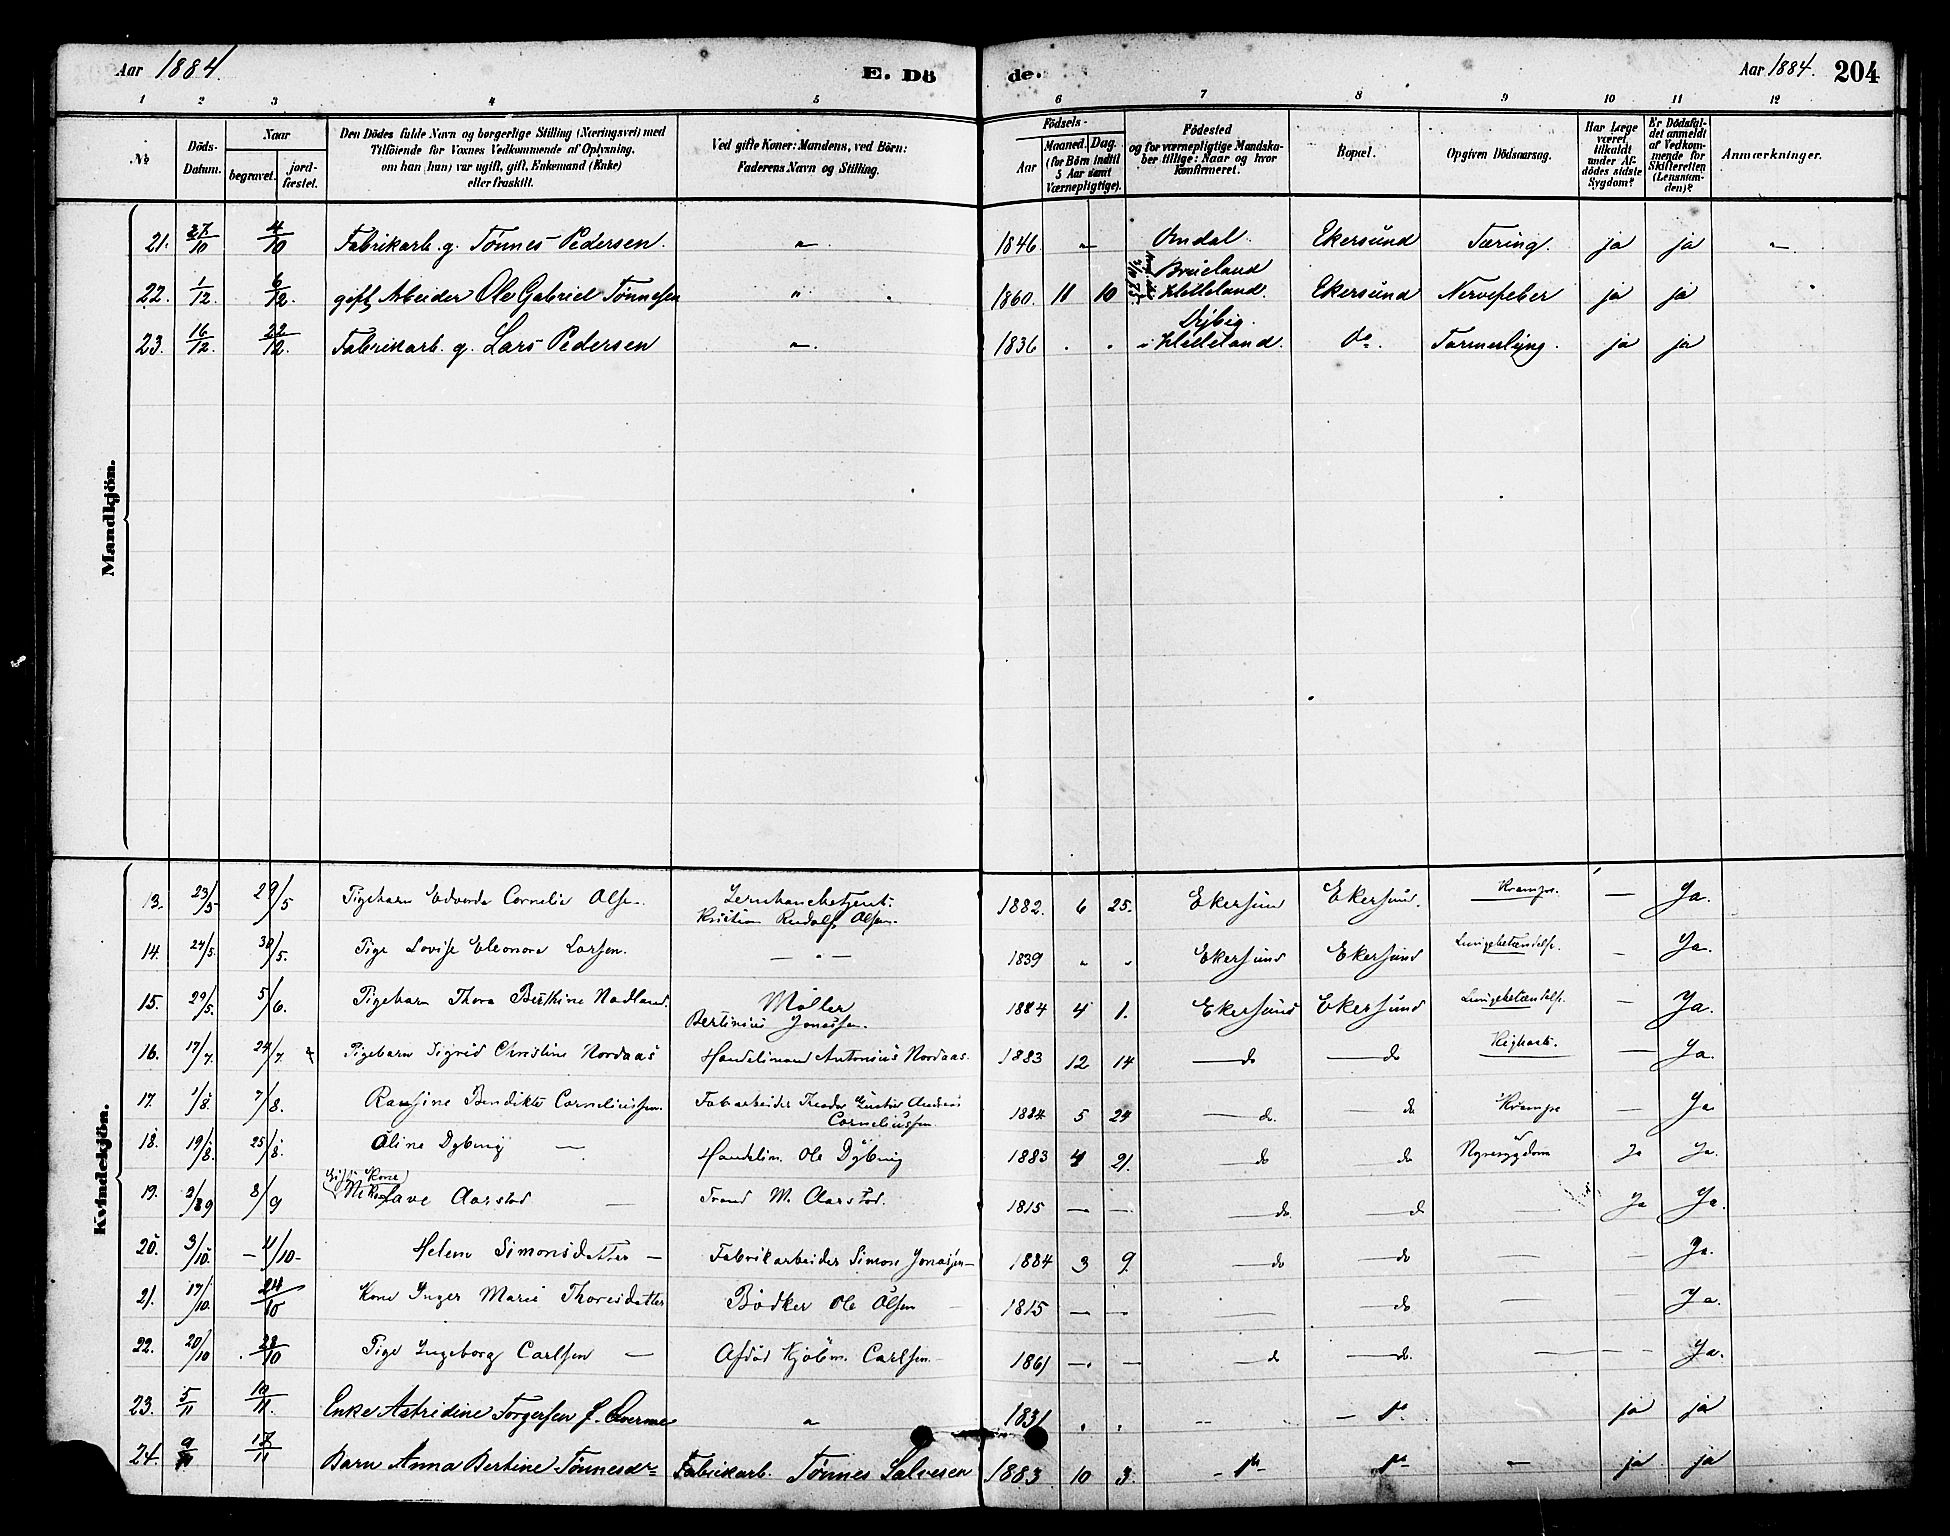 Aar 1884. E. Dö de. Aar 1884. 204
1 2 3 4 5 6 7 8 9 10 11 12
No Döds-Datum. Naar begravet. jord-fæstet. Den Dödes fulde Navn og borgerlige Stilling (Næringsvei) med Tilföiende for Voxnes Vedkommende af Oplysning, om han (hun) var ugift, gift, Enkemand (Enke) eller fraskilt. Ved gifte Koner: Mandens, ved Börn: Faderens Navn og Stilling. Födsels- Aar Maaned. Dag. (for Börn indtil 5 Aar samt Værnepligtige). Födested og for værnepligtige Mandska-ber tillige: Naar og hvor konfirmeret. Bopæl. Opgiven Dödsaarsag. Har Læge været tilkaldt under Af-dödes sidste Sygdom? Er Dödsfal-det anmeldt af Vedkom-mende for Skifteretten (Lensman-den)? Anmærkninger.
Mandkjön.
21. 27/10 4/10 Fabrikarb. g. Tönnes Pedersen. " 1846 " Ekersund Tæring. ja ja "
22. 1/12 6/12. gift Arbeider Ole Gabriel Tönnesen " 1860. 11 10 Helleland. Ekersund Nervefeber ja ja
23. 16/12. 22/12. Fabrikarb. g. Lars Pedersen " 1836 . . i Helleland. do. ja ja
Kvindekjön.
13. 23/5 29/5 Pigebarn Edvarda Cornelie Olsen. Kristian Rudolf Olsen. 1882. 6 25. Ekersund Ekersund. Krampe. — Ja.
14. 24/5. 30/5. Pige Lovise Eleonora Larsen. — " — 1839 " " Ekersund Ekersund Lungebetændelse. - Ja.
15. 29/5. 5/6. Pigebarn Thora Berthine Nodland. Möller Bertinius Jonassen. 1884 4 1. Ekersund Ekersund Lungebetændelse. — Ja.
16. 17/7. 24/7. Pigebarn Sigrid Christine Nordaas Handelsmand Antonius Nordaas. 1883 12 14 — do — do Kighoste. — Ja.
17. 1/8. 7/8. Benedikte Corneliussen. Fabarbeider Theodor Andreas Corneliussen. 1884 5 24 — do. — do Krampe — Ja
18. 19/8. 25/8. Oline Dybing — Handelsm. Ole Dybing 1883 4 21. — do — do Nyresygdom Ja Ja.
19. 2/9 8/9 Aarstad — Trond M. Aarstad. 1815 — — — do. — do — Ja Ja.
20. 3/10. — 4/10 — Helene Simonsdatter — Fabrikarbeider Simon Jonassen — 1884 3 9. — do — do — — Ja.
21. 17/10. 24/10 Kone Inger Marie Thoresdatter Bödker Ole Olsen 1815 — — — do — — Ja.
22. 20/10 28/10 Pige Ingeborg Carlsen — Afdöd Kjöbm. Carlsen — 1861 —. — — do — do. — — Ja.
23. 5/11 10/11. Enke Astridine Torgersen f. " 1831 . . -- — do ja ja
24. 9/11 17/11 Barn Anna Bertine Tönnesdr Fabrikarb. Tönnes Salvesen 1883 10 3. - do do - ja ja